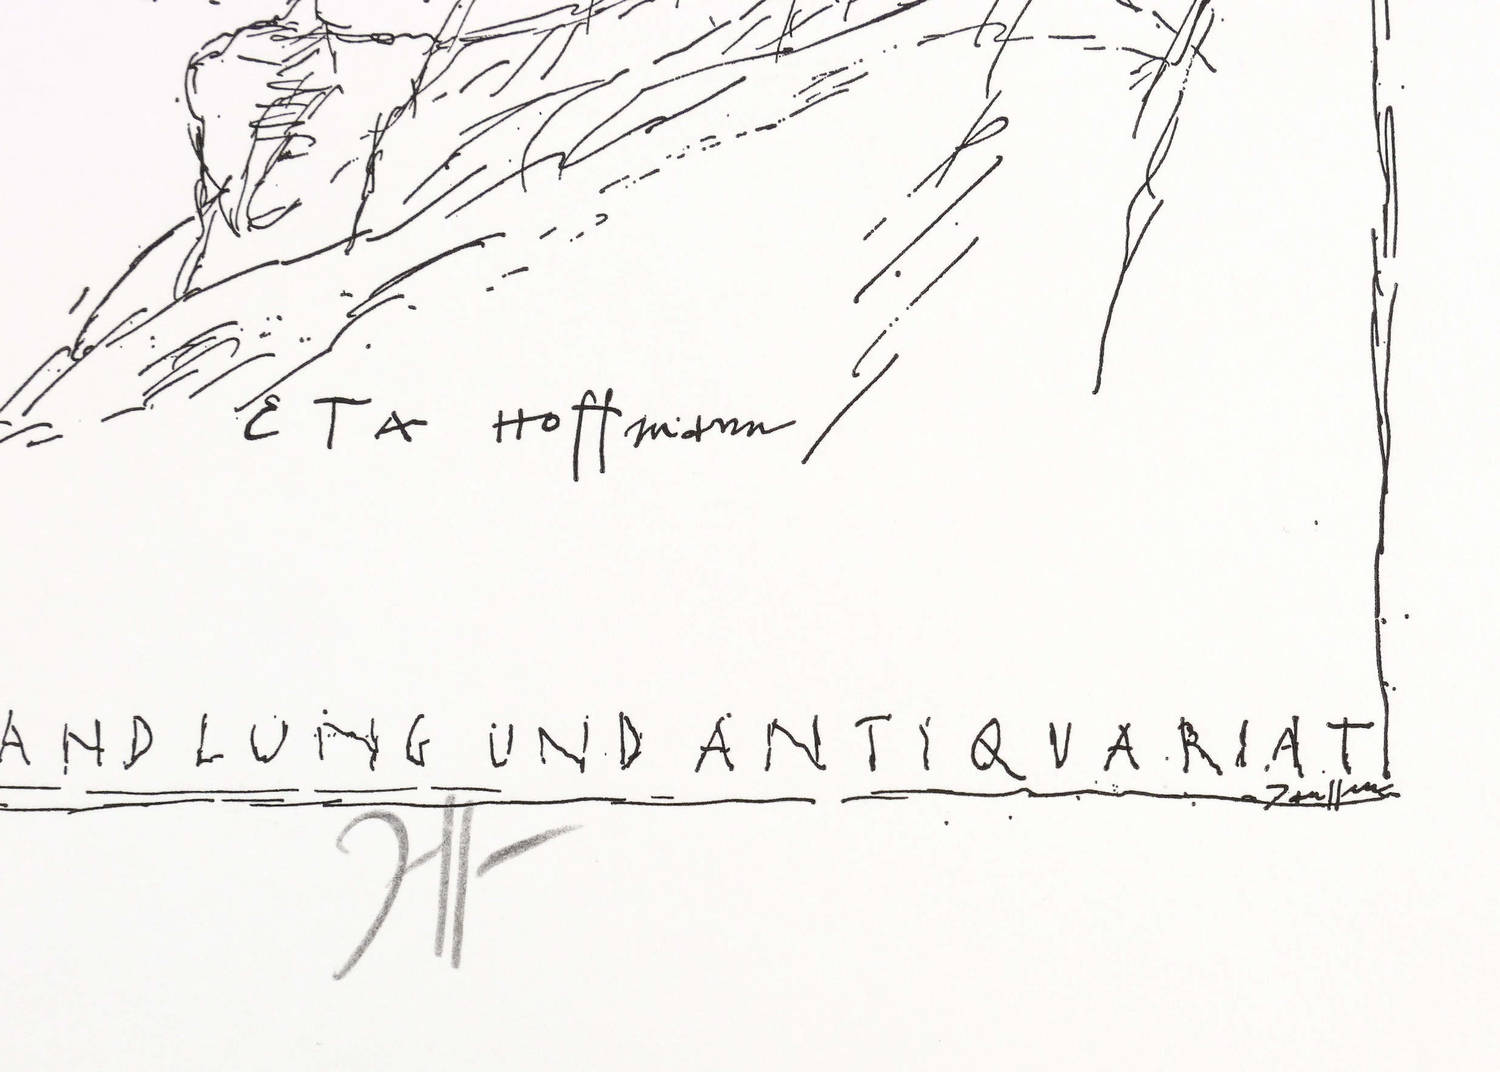 ETA Hoffmann
ANDLUNG UND ANTIQUARIAT